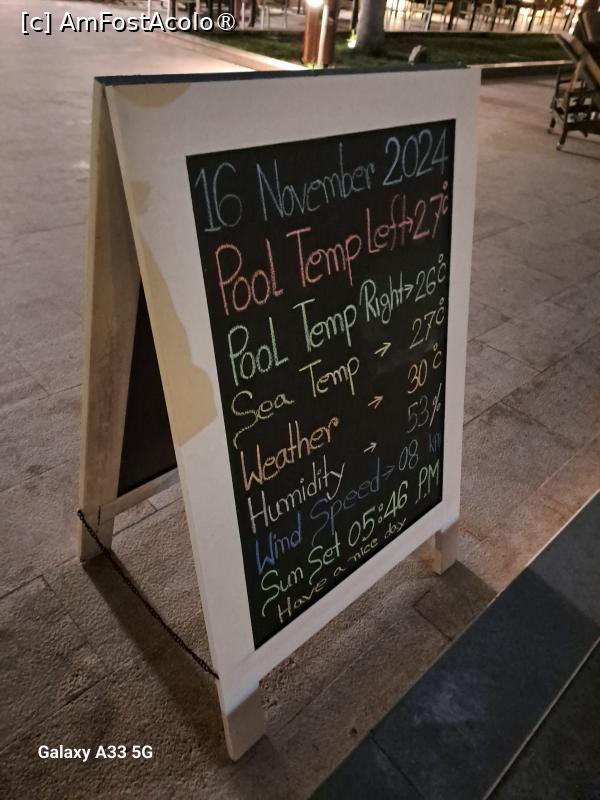 [c] AmFostAcolo®
16 November 2024
Pool Temp Left→27°c
Pool Temp Right→26°c
Sea Temp → 27°c
Weather → 30°c
Humidity → 53%
Wind Speed→08 km
Sun Set 05:46 PM
Have a nice day
Galaxy A33 5G